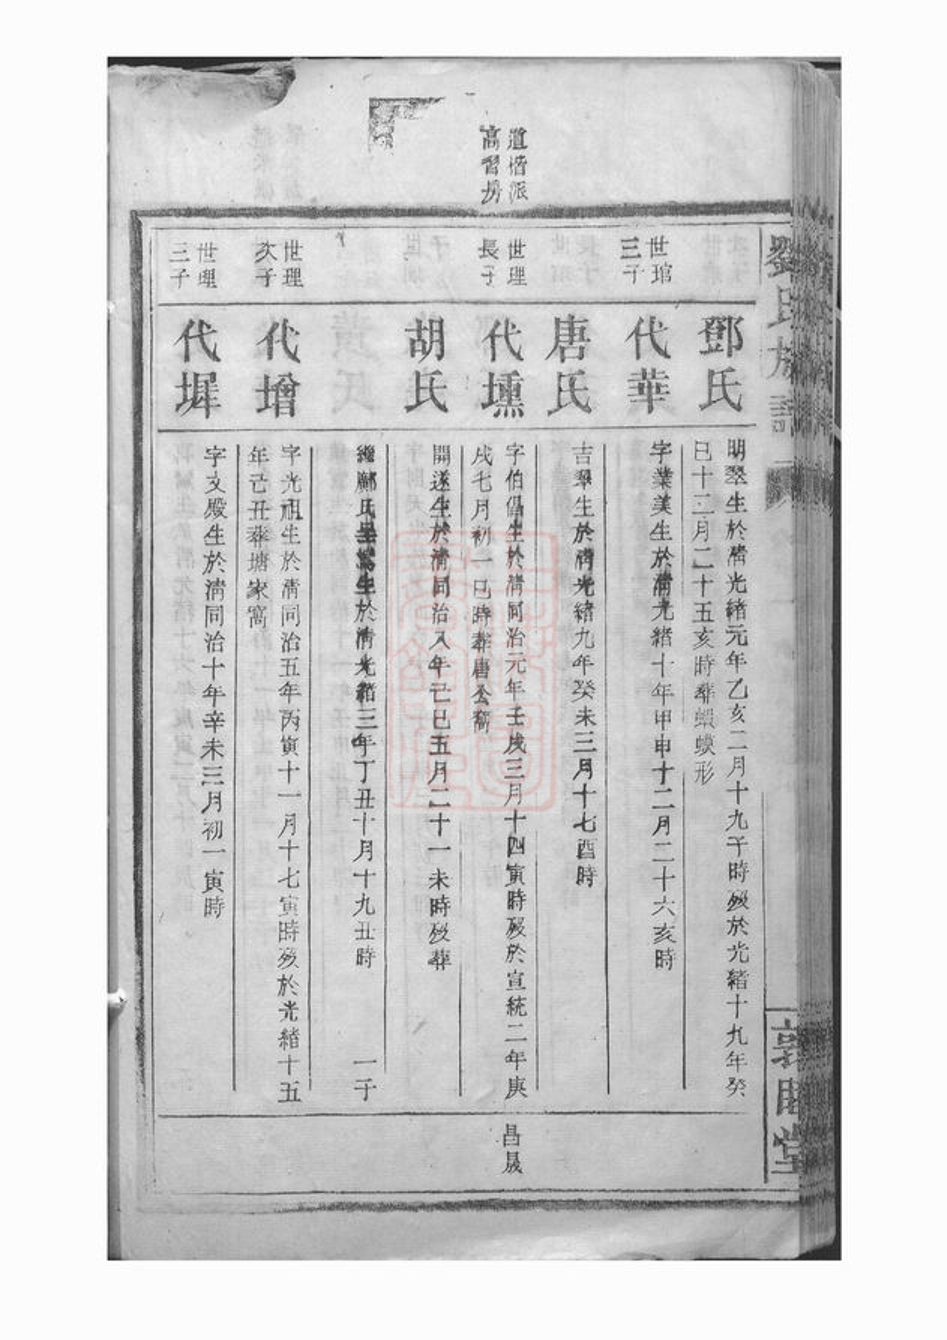 劉氏族譜
敦睦堂
道楷派
高習房
鄧氏
明翠生於清光緒元年乙亥二月十九午時歿於光緒十九年癸
巳十二月二十五亥時葬蝦蟆形
世琯
三子
代華
字業美生於清光緒十年甲申十二月二十六亥時
唐氏
吉翠生於清光緒九年癸未三月十七酉時
世理
長子
代壎
字伯倡生於清同治元年壬戌三月十四寅時歿於宣統二年庚
戌七月初一巳時葬唐公窩
昌晟
胡氏
開遂生於清同治八年己巳五月二十一未時歿葬
繼鄺氏
生於清光緒三年丁丑十月十九丑時
一子
世理
次子
代增
字光祖生於清同治五年丙寅十一月十七寅時歿於光緒十五
年己丑葬塘家窩
世理
三子
代墀
字文殿生於清同治十年辛未三月初一寅時